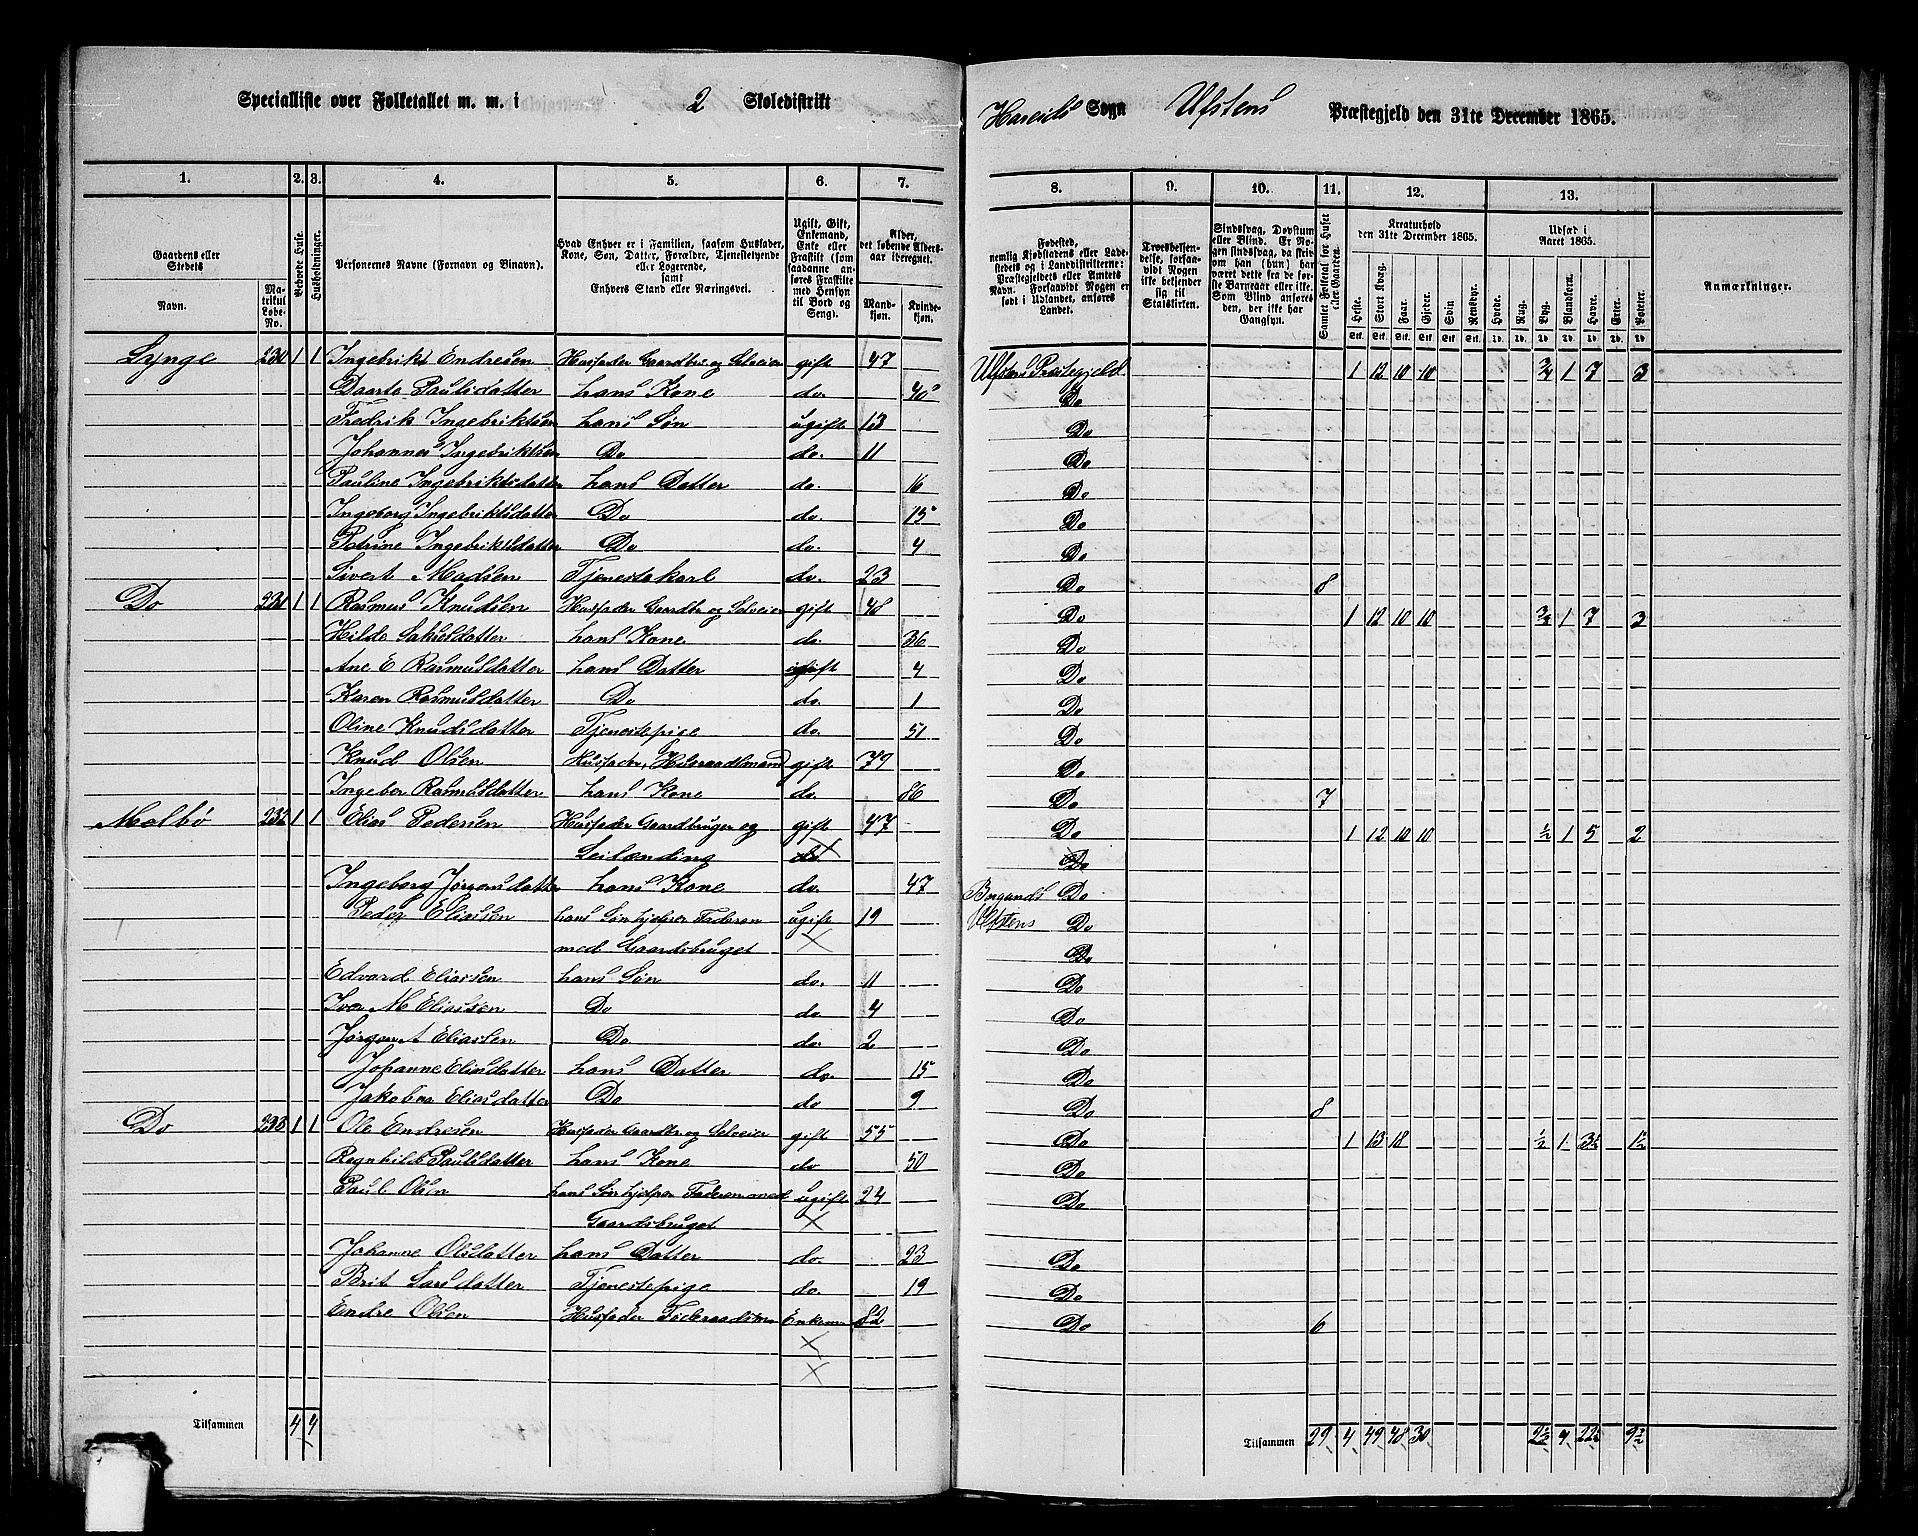 Specialliste over Folketallet m. m. i 2 Skoledistrikt
Hareids Sogn Ulfstens Præstegjeld den 31te December 1865.
1. 2. 3. 4. 5. 6. 7.
8. 9. 10. 11. 12. 13.
Gaardens eller Stedets
Navn.
Matrikul Løbe-No.
Beboede Huse.
Husholdninger.
Personernes Navne (Fornavn og Binavn).
Hvad Enhver er i Familien, saasom Husfader, Kone, Søn, Datter, Forældre, Tjenestetyende eller Logerende, samt Enhvers Stand eller Næringsvei.
Ugift, Gift, Enkemand, Enke eller Fraskilt (som saadanne anføres Fraskilte med Hensyn til Bord og Seng).
Alder, det løbende Aldersaar iberegnet.
Mandkjøn.
Kvindekjøn.
Fødested, nemlig Kjøbstadens eller Ladestedets og i Landdistrikterne: Præstegjeldets eller Amtets Navn. Forsaavidt Nogen er født i Udlandet, anføres Landet.
Troesbekjendelse, forsaavidt Nogen ikke bekjender sig til Statskirken.
Sindssvag, Døvstum eller Blind. Er Nogen sindssvag, da skriv om han (hun) har været dette fra de første Barneaar eller ikke. Som Blind anføres den, der ikke har Gangsyn.
Samlet Folketal for Huset eller Gaarden.
Kreaturhold den 31te December 1865.
Heste. Stort Kvæg. Faar. Gjeder. Svin. Rensdyr.
Udsæd i Aaret 1865.
Hvede. Rug. Byg. Blandkorn. Havre. Erter. Poteter.
Anmærkninger.
Lynge 230 1 1 Ingebrikt Endresen Husfader Gaardbr og Selveier gift 47 Ulfstens Præstegjeld 1 12 10 10 3/4 1 7 3
Daarte Paulsdatter hans Kone do. 40 Do
Fredrik Ingebriktsen hans Søn ugift 13 Do
Johannes Ingebriktsen Do do. 11 Do
Pauline Ingebriktsdatter hans Datter do. 16 Do
Ingeborg Ingebriktsdatter Do do. 15 Do
Petrine Ingebriktsdatter Do do. 4 Do
Sivert Madsen Tjenestekarl do. 23 Do 8
Do 231 1 1 Rasmus Knudsen Husfader Gaardbr og Selveier gift 48 Do 1 12 10 10 3/4 1 7 3
Hilda Sakusdatter hans Kone do. 36 Do
Ane E Rasmusdatter hans Datter ugift 4 Do
Karen Rasmusdatter Do do. 1 Do
Oline Knudsdatter Tjenestepige do. 51 Do
Knud Olsen Husfader, Husraadsmand gift 79 Do
Ingeber Rasmusdatter hans Kone do. 86 Do 7
Melbø 232 1 1 Elias Pedersen Husfader Gaardbruger og gift 47 Do 1 12 10 10 1/2 1 5 2
Leilænding do Do
Ingeborg Jørgensdatter hans Kone do. 47 Borgunds Do
Peder Eliassen hans Søn hjelper Faderen ugift 19 Ulfstens Do
med Gaardsbruget Do
Edvard Eliassen hans Søn do. 11 Do
Iver M Eliassen Do do 4 Do
Jørgen A Eliassen Do do. 2 Do
Johanne Eliasdatter hans Datter do. 15 Do
Jakobina Eliasdatter Do do 9 Do 8
Do 233 1 1 Ole Endresen Husfader Gaardbr og Selveier gift 55 Do 1 13 18 1/2 1 3 1/2 1 1/2
Ragnhild Paulsdatter hans Kone do 50 Do
Paul Olsen hans Søn hjelper Faderen med ugift 24 Do
Gaardsbruget
Johanne Olsdatter hans Datter do. 23 Do
Brit Larsdatter Tjenestepige do. 19 Do
Endre Olsen Husfader Føderaadsm Enkem 82 Do 6
Tilsammen 4 4
Tilsammen 29 4 49 48 30 2 1/2 4 22 1/2 9 1/2